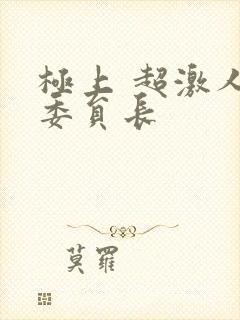 極上 超激人
委員長
莫羅